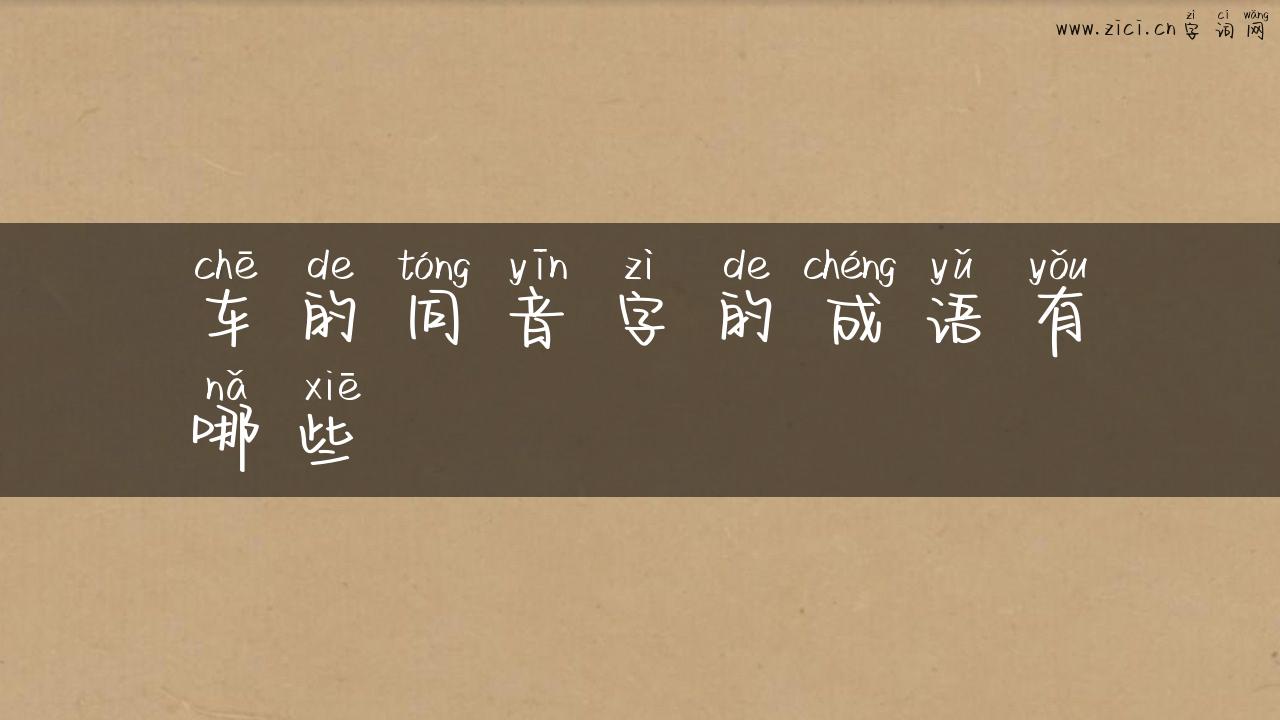 zì cí wǎng
www.zici.cn 字词网
chē de tóng yīn zì de chéng yǔ yǒu
车的同音字的成语有
nǎ xiē
哪些